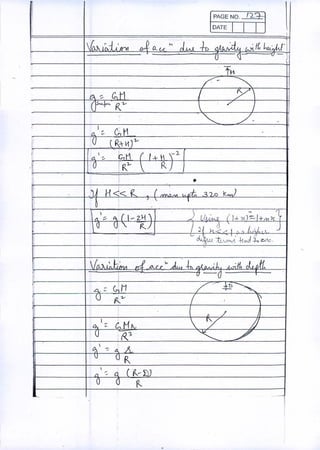 PAGE NO. 127
DATE
Variation of acc^n due to gravity with height
H
R
g = GM/R²
g' = GM/(R+H)²
g' = GM/R² (1+H/R)^-2
If H<<R, (max upto 320 km)
g' = g(1-2H/R)
{ Using (1+x)^n=1+nx }
if x<<1 as higher
degree terms tend to zero.
Variation of acc^n due to gravity with depth
D
R
g = GM/R²
g' = GMr/R³
g' = g r/R
g' = g (R-D)/R